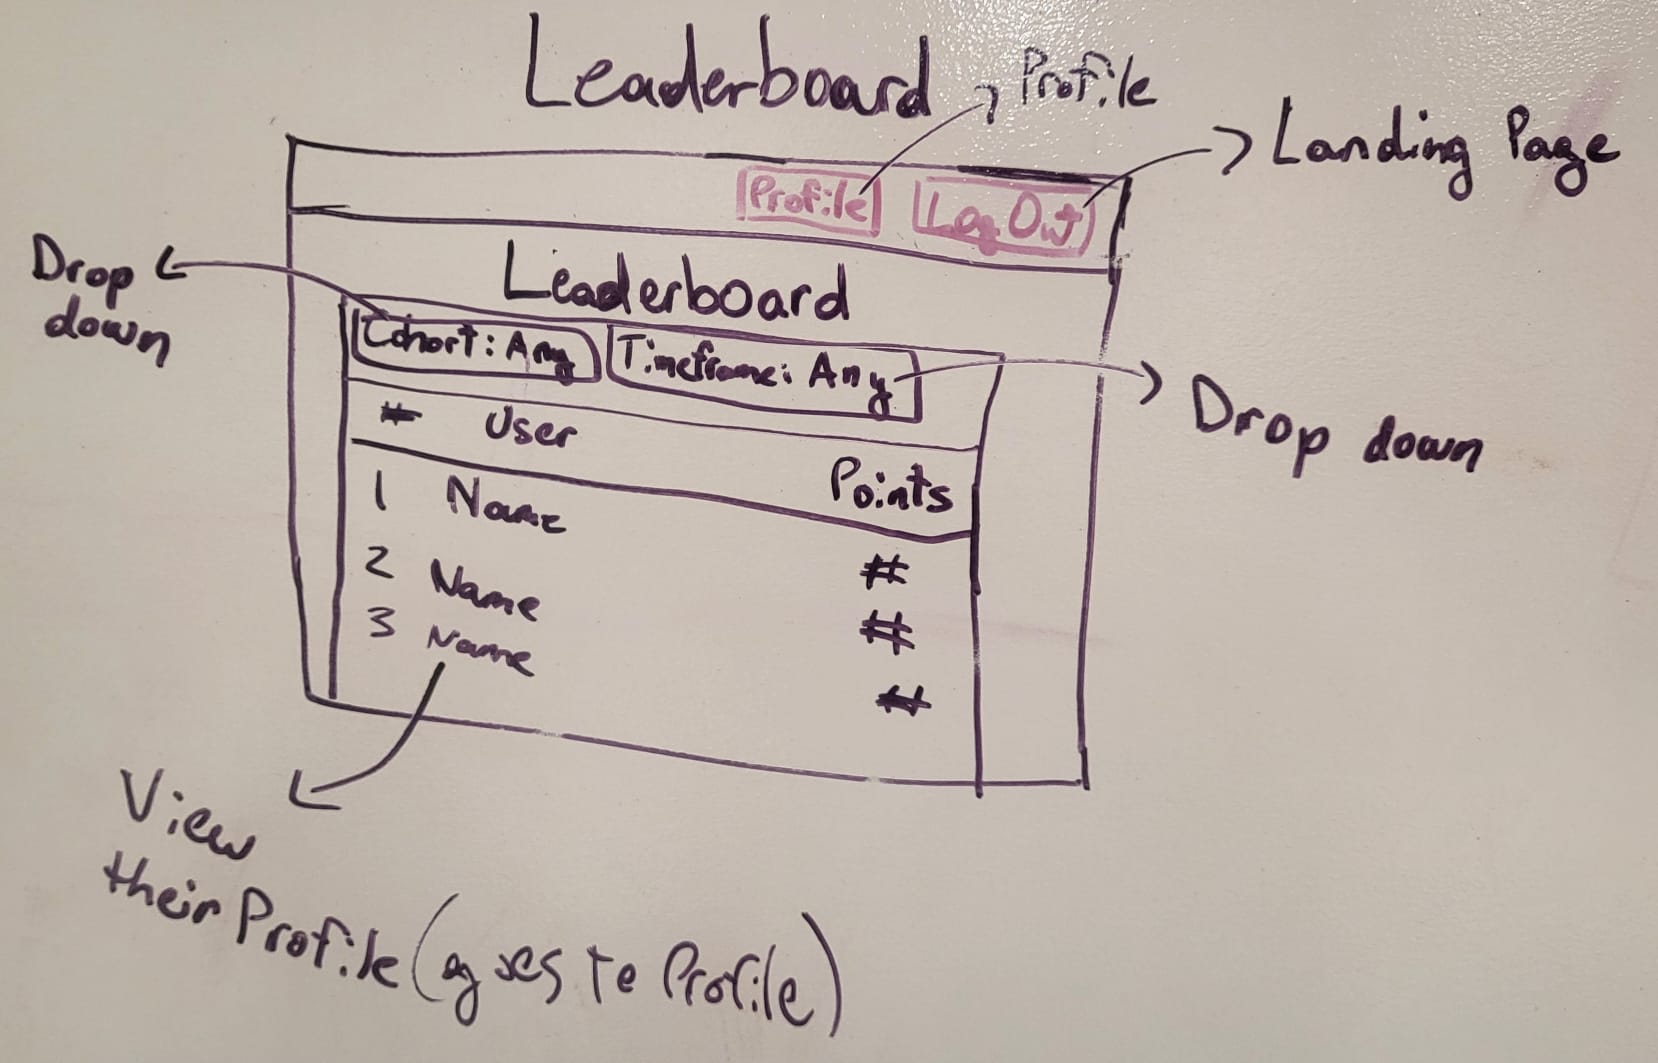 Leaderboard
Profile
Landing Page
Profile
Log Out
Leaderboard
Drop
down
Cohort: Any
Timeframe: Any
Drop down
# User
Points
1 Name
#
2 Name
#
3 Name
#
View
their Profile (goes to Profile)